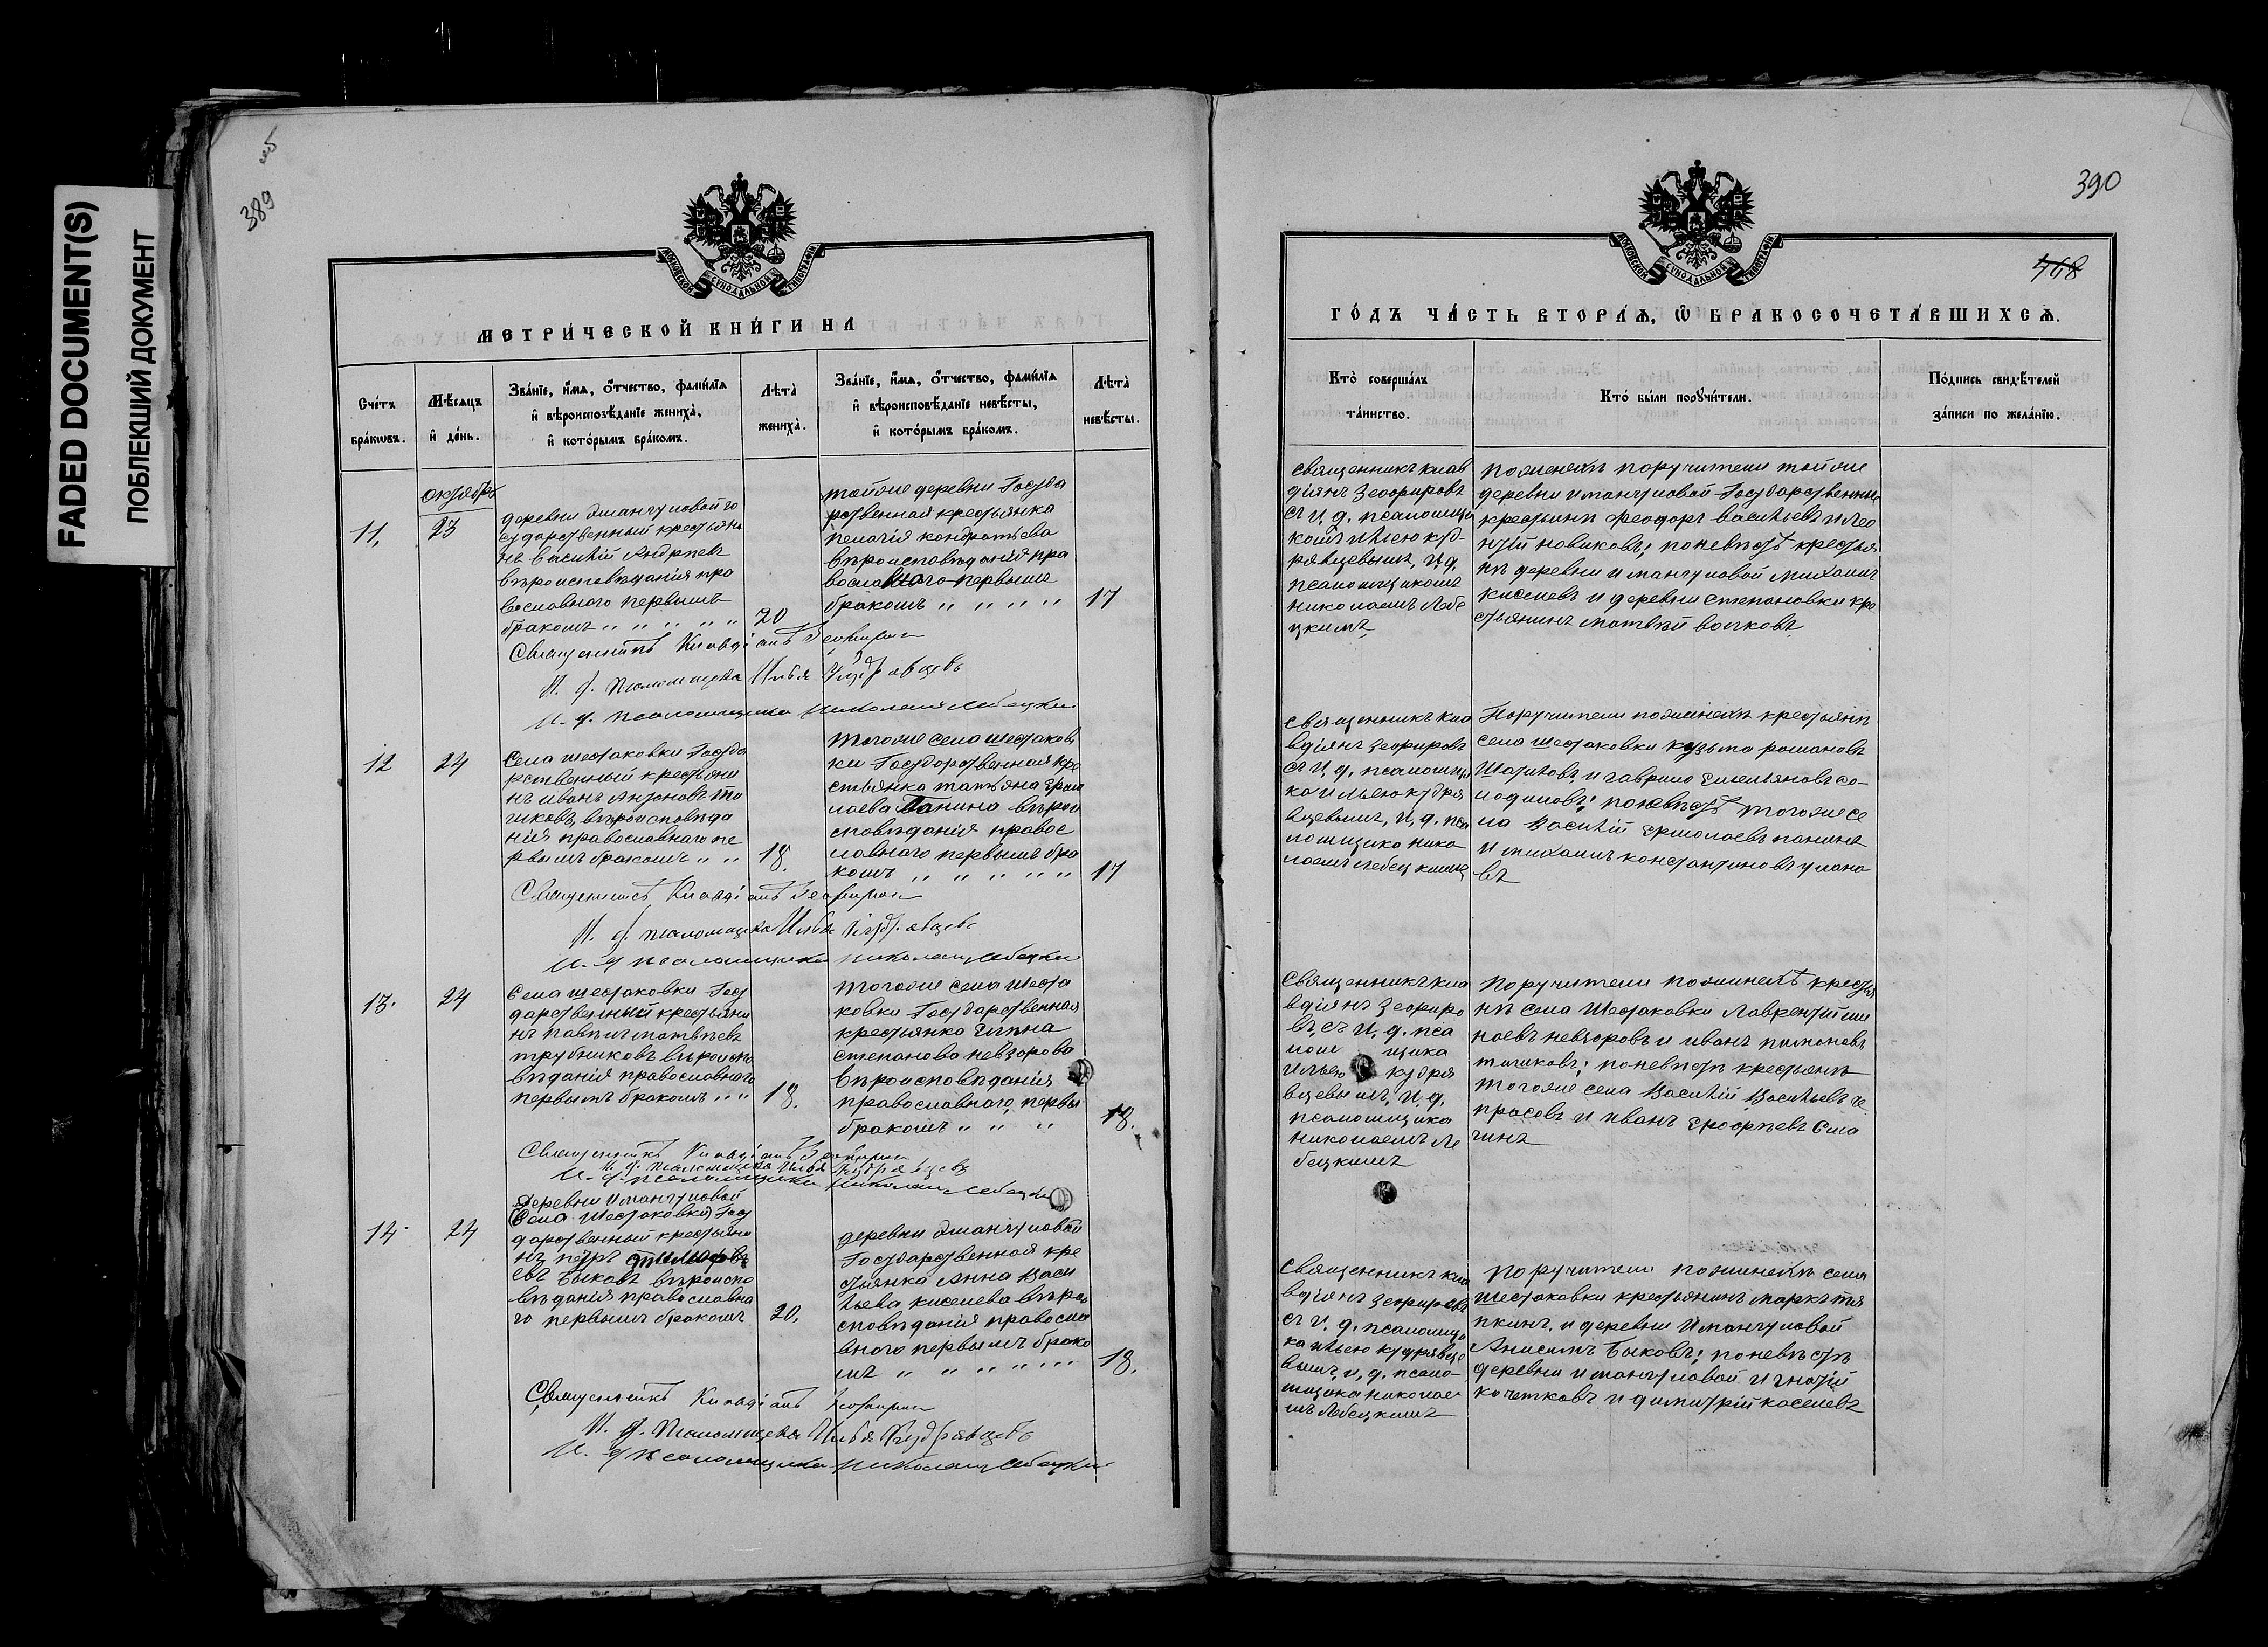 FADED DOCUMENT(S)
ПОБЛЕКШИЙ ДОКУМЕНТ
389
МОСКОВСКОЙ СѴНОДАЛЬНОЙ ТИПОГРАФІИ
МЕТРИ́ЧЕСКОЙ КНИ́ГИ НА
Сче́тъ бра́кѡвъ.
Мѣ́сяцъ и҆ де́нь.
Зва́нїе, и҆́мѧ, ѻ҆́тчество, фами́лїѧ и҆ вѣроисповѣ́данїе жениха̀, и҆ кото́рымъ бра́комъ.
Лѣ́та̀ жениха̀.
Зва́нїе, и҆́мѧ, ѻ҆́тчество, фами́лїѧ и҆ вѣроисповѣ́данїе невѣ́сты, и҆ кото́рымъ бра́комъ.
Лѣ́та̀ невѣ́сты.
октября
11,
23
деревни Имангуловой го
сударственный крестьяни
нъ Василій Андреевъ
вѣроисповѣданія пра
вославнаго первымъ
бракомъ
20
тойже деревни Госуда
рственная крестьянка
пелагія кондратьева
вѣроисповѣданія пра
вославнаго первымъ
бракомъ
17
Священникъ Клавдіанъ Зефировъ
И. д. псаломщика Илья Кудрявцевъ
И. д. псаломщика Николай Лебецкій
12
24
Села шестаковки Госуда
рственный крестьяни
нъ иванъ Антоновъ
вѣроисповѣда
нія православнаго пе
рвымъ бракомъ
18.
тогоже села шестаков
ки Государственная кре
стьянка татьяна Ермо
лаева Панина вѣрои
сповѣданія правос
лавнаго первымъ бра
комъ
17
Священникъ Клавдіанъ Зефировъ
И. д. псаломщика Илья Кудрявцевъ
И. д псаломщика Николай Лебецкій
13.
24
Села шестаковки Госу
дарственный крестьяни
нъ павелъ матвѣевъ
трубниковъ вѣроиспо
вѣданія православнаго
первымъ бракомъ
18.
тогоже села шеста
ковки Государственная
крестьянка Елена
степанова невзорова
вѣроисповѣданія
православнаго первы
бракомъ
18.
Священникъ Клавдіанъ Зефировъ
И. д. псаломщика Илья Кудрявцевъ
И. д. псаломщика Николай Лебецкій
14.
24
Деревни Имангуловой
(Села Шестаковки) Госу
дарственный крестьяни
нъ петръ
евъ Быковъ вѣроиспо
вѣданія православна
го первымъ бракомъ
20.
деревни Имангуловой
Государственная кре
стьянка Анна Васи
льева киселева вѣрои
сповѣданія правосла
внаго первымъ брако
мъ
18.
Священникъ Клавдіанъ Зефировъ
И. д. псаломщика Илья Кудрявцевъ
И. д псаломщика Николай Лебецкій
390
468
МОСКОВСКОЙ СѴНОДАЛЬНОЙ ТИПОГРАФІИ
ГО́ДЪ ЧА́СТЬ ВТОРА́Ѧ, Ѡ҆ БРАКОСОЧЕТА́ВШИХСѦ.
Кто̀ соверша́лъ та́инство.
Кто̀ бы́ли порꙋчи́тели.
По́дпись свидѣ́телей за́писи по жела́нїю.
священникъ клав
діянъ Зефировъ
съ и, д. псаломщи
комъ ильею куд-
рявцевымъ, и, д,
псаломщикомъ
николаемъ Лебе
цкимъ
поженихѣ поручители тойже
деревни имангуловой Государственные
крестьяни феодоръ васильевъ и лео
нтій новиковъ; поневѣстѣ крестья
нѣ деревни имангуловой михаилъ
киселевъ и деревни степановки кре
стьянинъ матвѣй волковъ
священникъ кла
вдіянъ зефировъ
съ и, д. псаломщи
ка ильею кудря
вцевымъ, и, д. пса
ломщика нико
лаемъ лебецкимъ
Поручители поженихѣ крестьянѣ
села шестаковки кузьма романовъ
и гаврило Емельяновъ со-
лодиловъ; поневѣстѣ тогоже се
ла Василій Ермолаевъ панинъ
и михаилъ константиновъ улано
въ
Священникъ кла
вдіянъ зефиро
въ съ и, д. пса
лом щика
ильею кудря
вцевымъ, и, д.
псаломщика
николаемъ Ле
бецкимъ
Поручители поженихѣ крестья
нѣ села Шестаковки Лаврентій
невзоровъ и иванъ
поневѣстѣ крестьянѣ
тогоже села Василій Васильевъ че
прасовъ и иванъ Ерофѣевъ
Священникъ кла
вдіянъ зефировъ
съ и, д. псаломщи
ка ильею кудрявце
вымъ, и, д. псало-
мщика николае
мъ Лебецкимъ
поручители поженихѣ села
Шестаковки крестьянинъ маркъ тя
пкинъ, и деревни имангуловой
Анисимъ Быковъ; поневѣстѣ
деревни имангуловой игнатій
кочетковъ и димитрій киселевъ